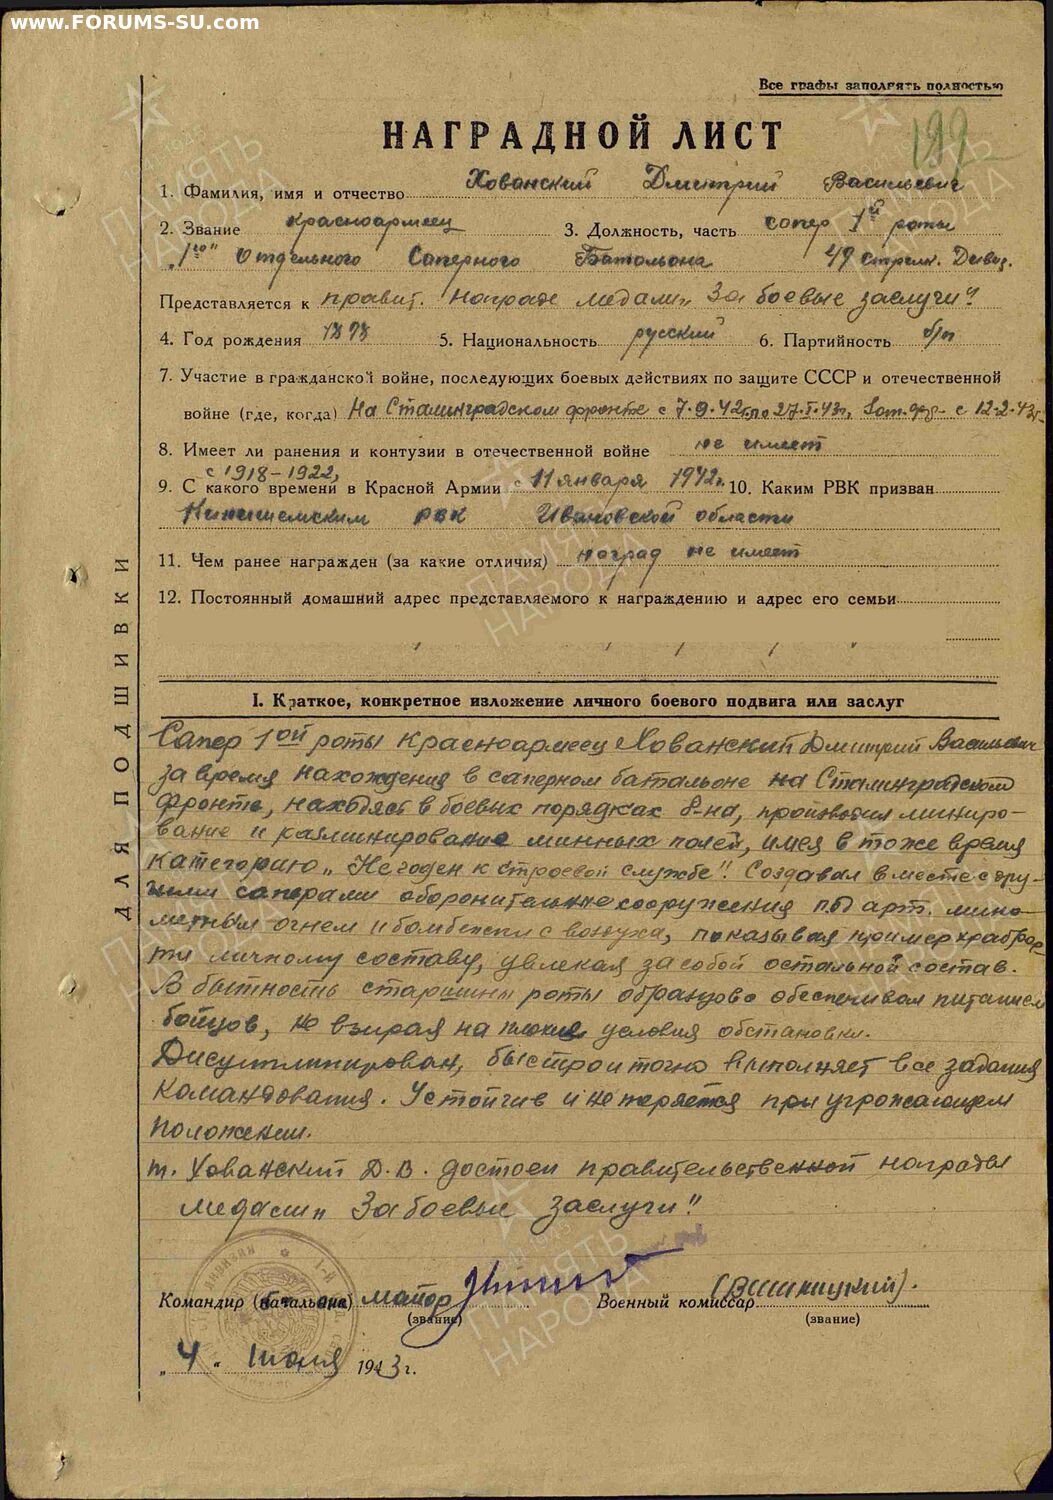 www.FORUMS-SU.com
Все графы заполнять полностью
199
НАГРАДНОЙ ЛИСТ
1. Фамилия, имя и отчество Хованский Дмитрий Васильевич
2. Звание красноармеец 3. Должность, часть сапер 1й роты
„1го" Отдельного Саперного Батальона 49 стрелк. Дивиз.
Представляется к правит. награде медали „За боевые заслуги"
4. Год рождения 1898 5. Национальность русский 6. Партийность б/п
7. Участие в гражданской войне, последующих боевых действиях по защите СССР и отечественной
войне (где, когда) На Сталинградском фронте с 7.9.42г. по 27.I.43г., Зап. фр- с 12.2.43г.
8. Имеет ли ранения и контузии в отечественной войне не имеет
с 1918-1922,
9. С какого времени в Красной Армии с 11 января 1942г. 10. Каким РВК призван
Кинишемским РВК Ивановской области
11. Чем ранее награжден (за какие отличия) наград не имеет
12. Постоянный домашний адрес представляемого к награждению и адрес его семьи
ДЛЯ ПОДШИВКИ
I. Краткое, конкретное изложение личного боевого подвига или заслуг
Сапер 1ой роты красноармеец Хованский Дмитрий Васильевич
за время нахождения в саперном батальоне на Сталинградском
фронте, находясь в боевых порядках б-на, производил миниро-
вание и разминирование минных полей, имея в тоже время
категорию „Не годен к строевой службе". Создавал вместе с дру-
гими саперами оборонительные сооружения под арт. мино-
метным огнем и бомбежкой с воздуха, показывая пример храброс-
ти личному составу, увлекая за собой остальной состав.
В бытность старшины роты образцово обеспечивал питанием
бойцов, не взирая на плохие условия обстановки.
Дисциплинирован, быстро и точно выполняет все задания
командования. Устойчив и не теряется при угрожающем
положении.
т. Хованский Д.В. достоен правительственной награды
медали „За боевые заслуги"
Командир (начальник) майор Военный комиссар
(звание) (звание)
„4" Июля 1943г.
ПАМЯТЬ НАРОДА